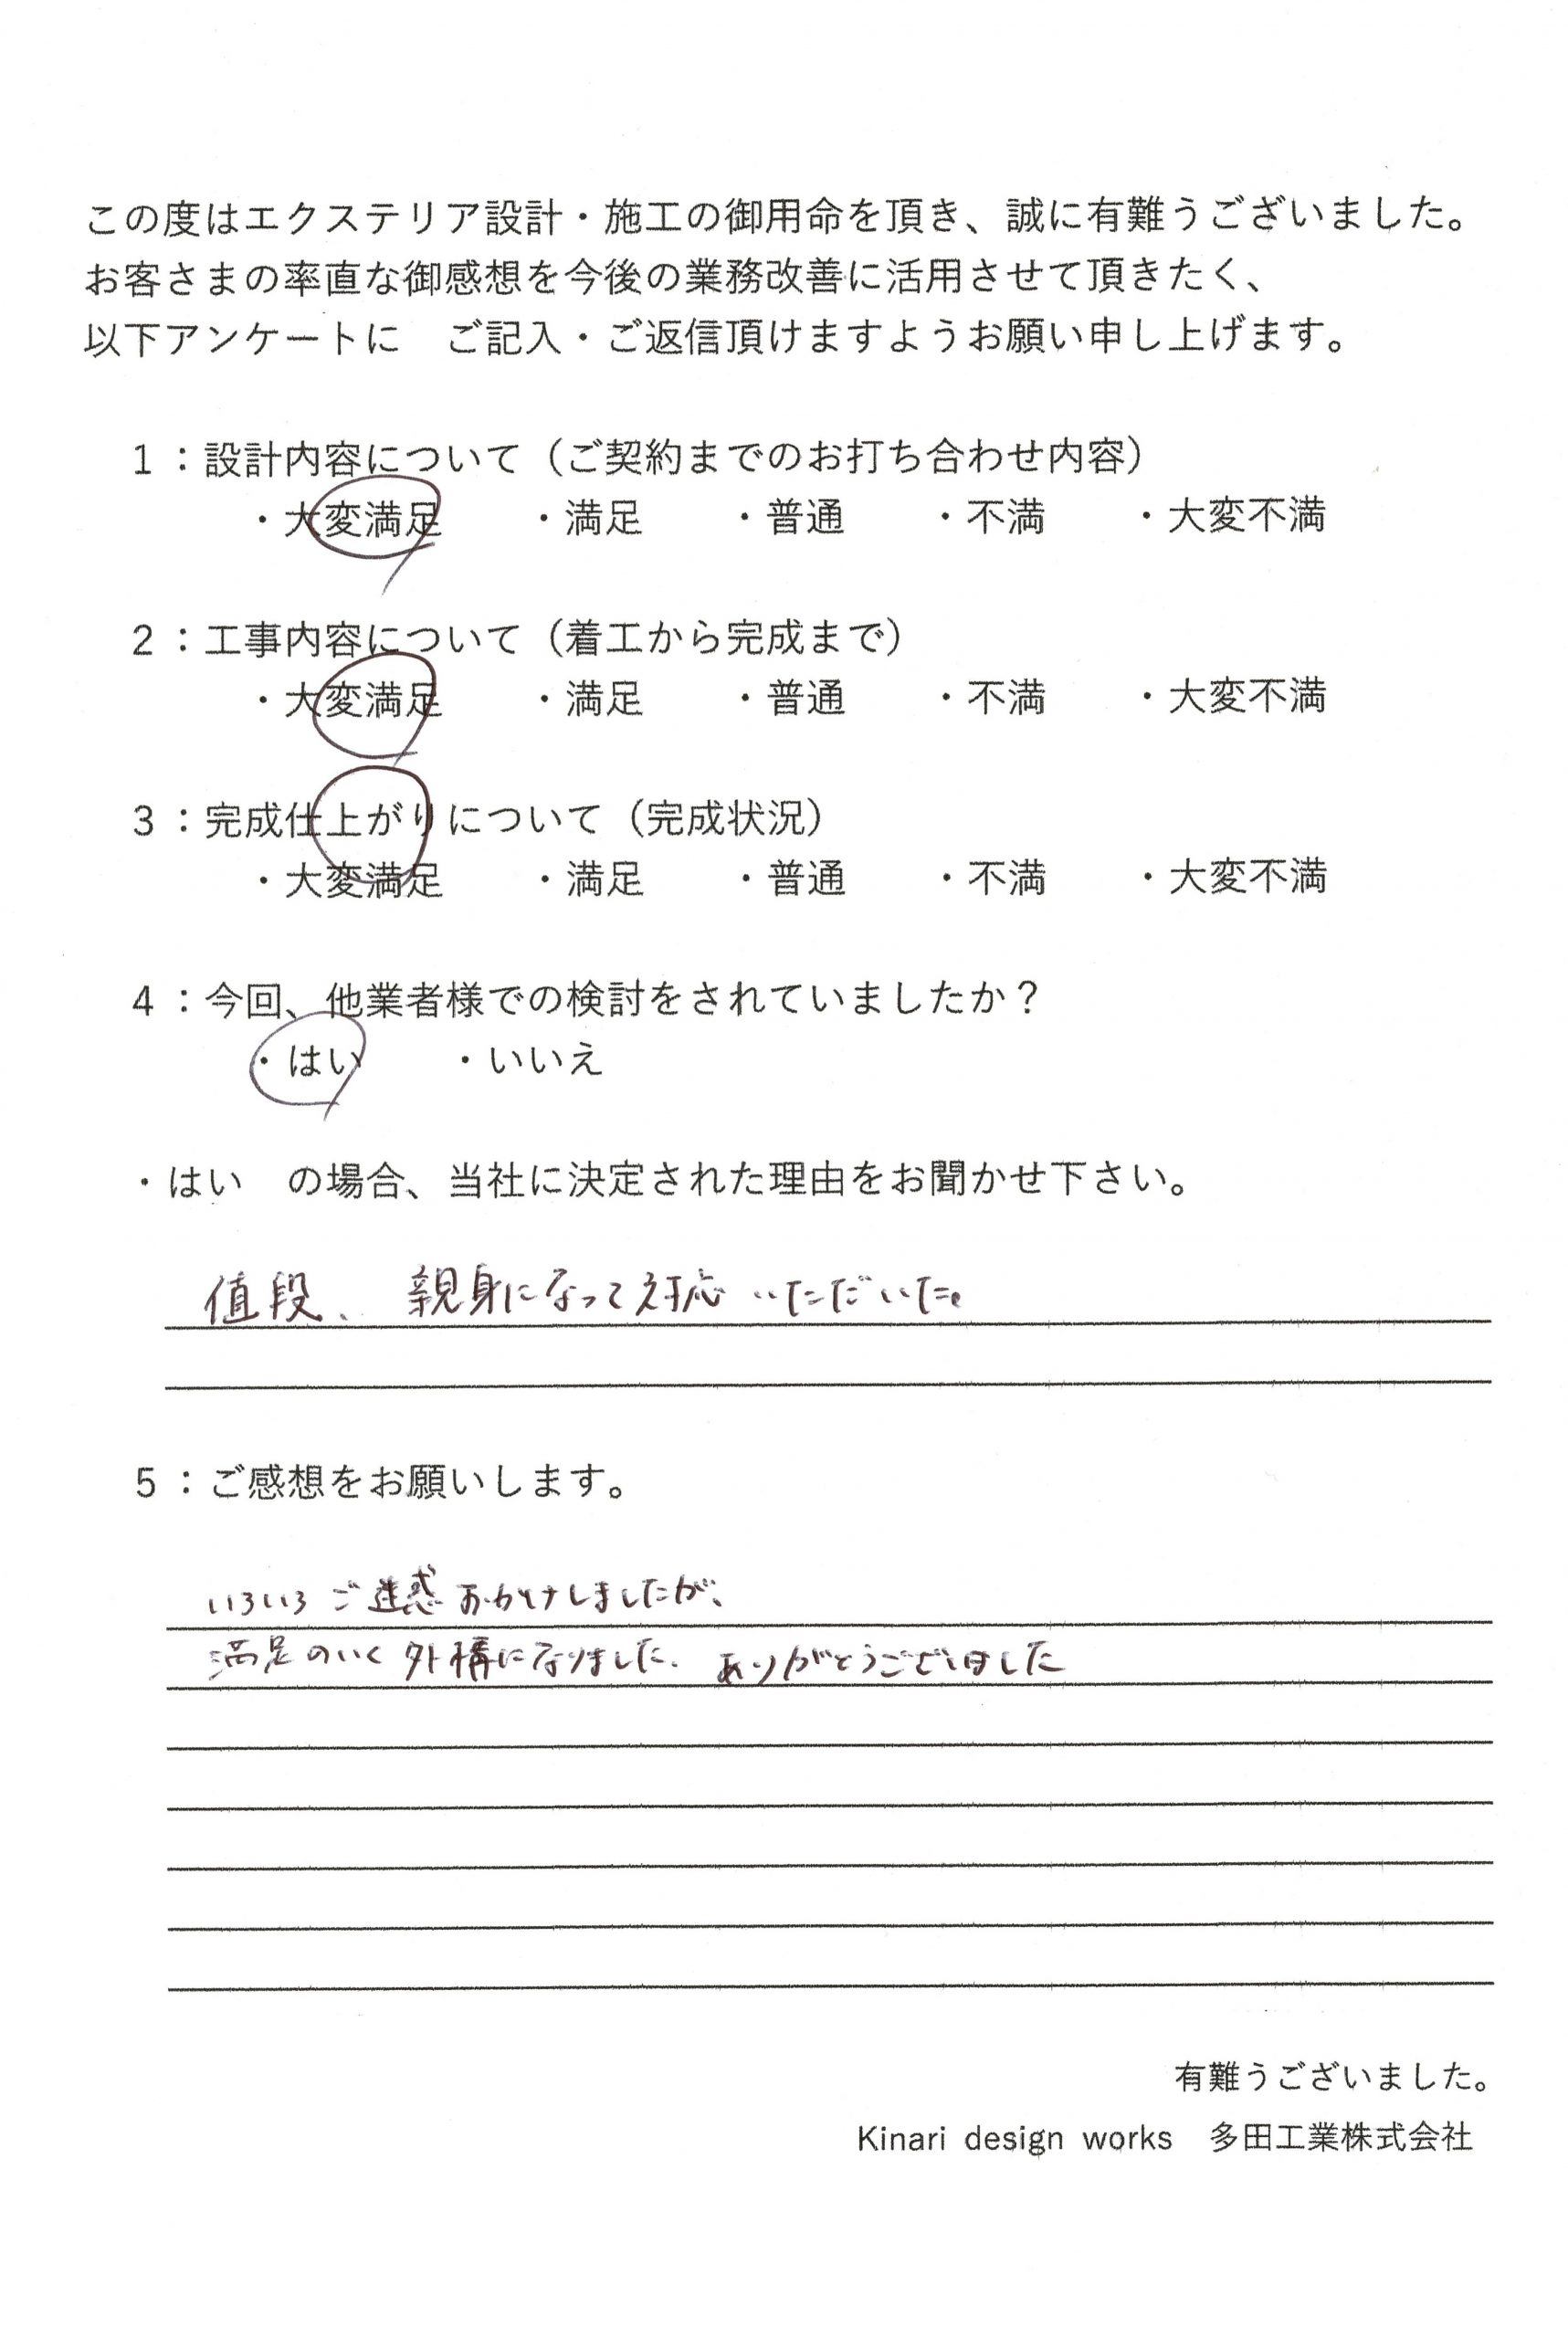 この度はエクステリア設計・施工の御用命を頂き、誠に有難うございました。
お客さまの率直な御感想を今後の業務改善に活用させて頂きたく、
以下アンケートに　ご記入・ご返信頂けますようお願い申し上げます。
1：設計内容について（ご契約までのお打ち合わせ内容）
・大変満足　・満足　・普通　・不満　・大変不満
2：工事内容について（着工から完成まで）
・大変満足　・満足　・普通　・不満　・大変不満
3：完成仕上がりについて（完成状況）
・大変満足　・満足　・普通　・不満　・大変不満
4：今回、他業者様での検討をされていましたか？
・はい　・いいえ
・はい　の場合、当社に決定された理由をお聞かせ下さい。
値段、親身になって対応いただいた。
5：ご感想をお願いします。
いろいろご迷惑おかけしましたが、
満足のいく外構になりました。ありがとうございました
有難うございました。
Kinari design works　多田工業株式会社